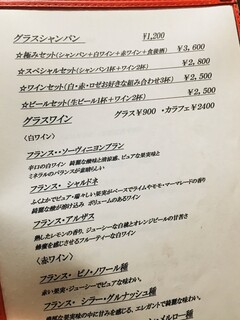 グラスシャンパン ¥1,200
☆極みセット(シャンパン+白ワイン+赤ワイン+食後酒) ¥3,600
☆スペシャルセット(シャンパン1杯+ワイン2杯) ¥2,800
☆ワインセット(白・赤・ロゼお好きな組み合わせ3杯) ¥2,500
☆ビールセット(生ビール1杯+ワイン2杯) ¥2,500
グラスワイン グラス¥900 ・カラフェ¥2400
〈白ワイン〉
フランス・・ソーヴィニヨンブラン
辛口の白ワイン 綺麗な酸味と清涼感、ピュアな果実味と
ミネラルのバランスが素晴らしい
フランス・ シャルドネ
ふくよかでピュア・瑞々しい果実がベースでライムやマーマレードの香り
綺麗な酸が溶け込み ボリュームのあるワイン
フランス・アルザス
熟したレモンの香り、ジューシーな白桃とオレンジピールの甘苦さ
蜂蜜を感じさせるフルーティーな白ワイン
〈赤ワイン〉
フランス・ ピノ・ノワール種
赤い果実・ジューシーでピュアな味わい。
フランス・ シラー・グルナッシュ種
果実味の中に甘みを感じる、エレガントで綺麗な味わい。
メルロー種